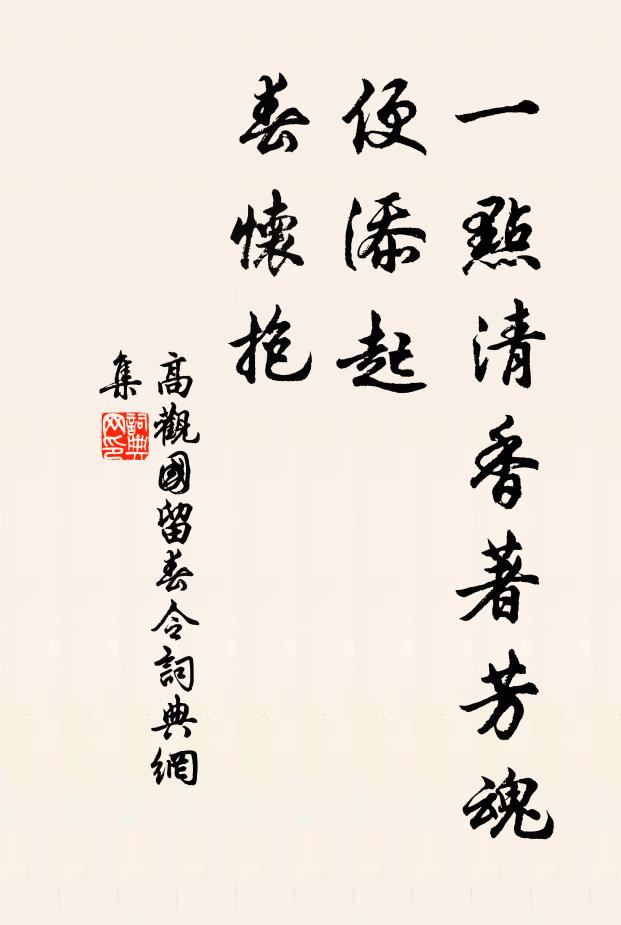 一點清香著芳魂
便添起
春懷抱
高觀國留春令詞典網
集
詞典网印